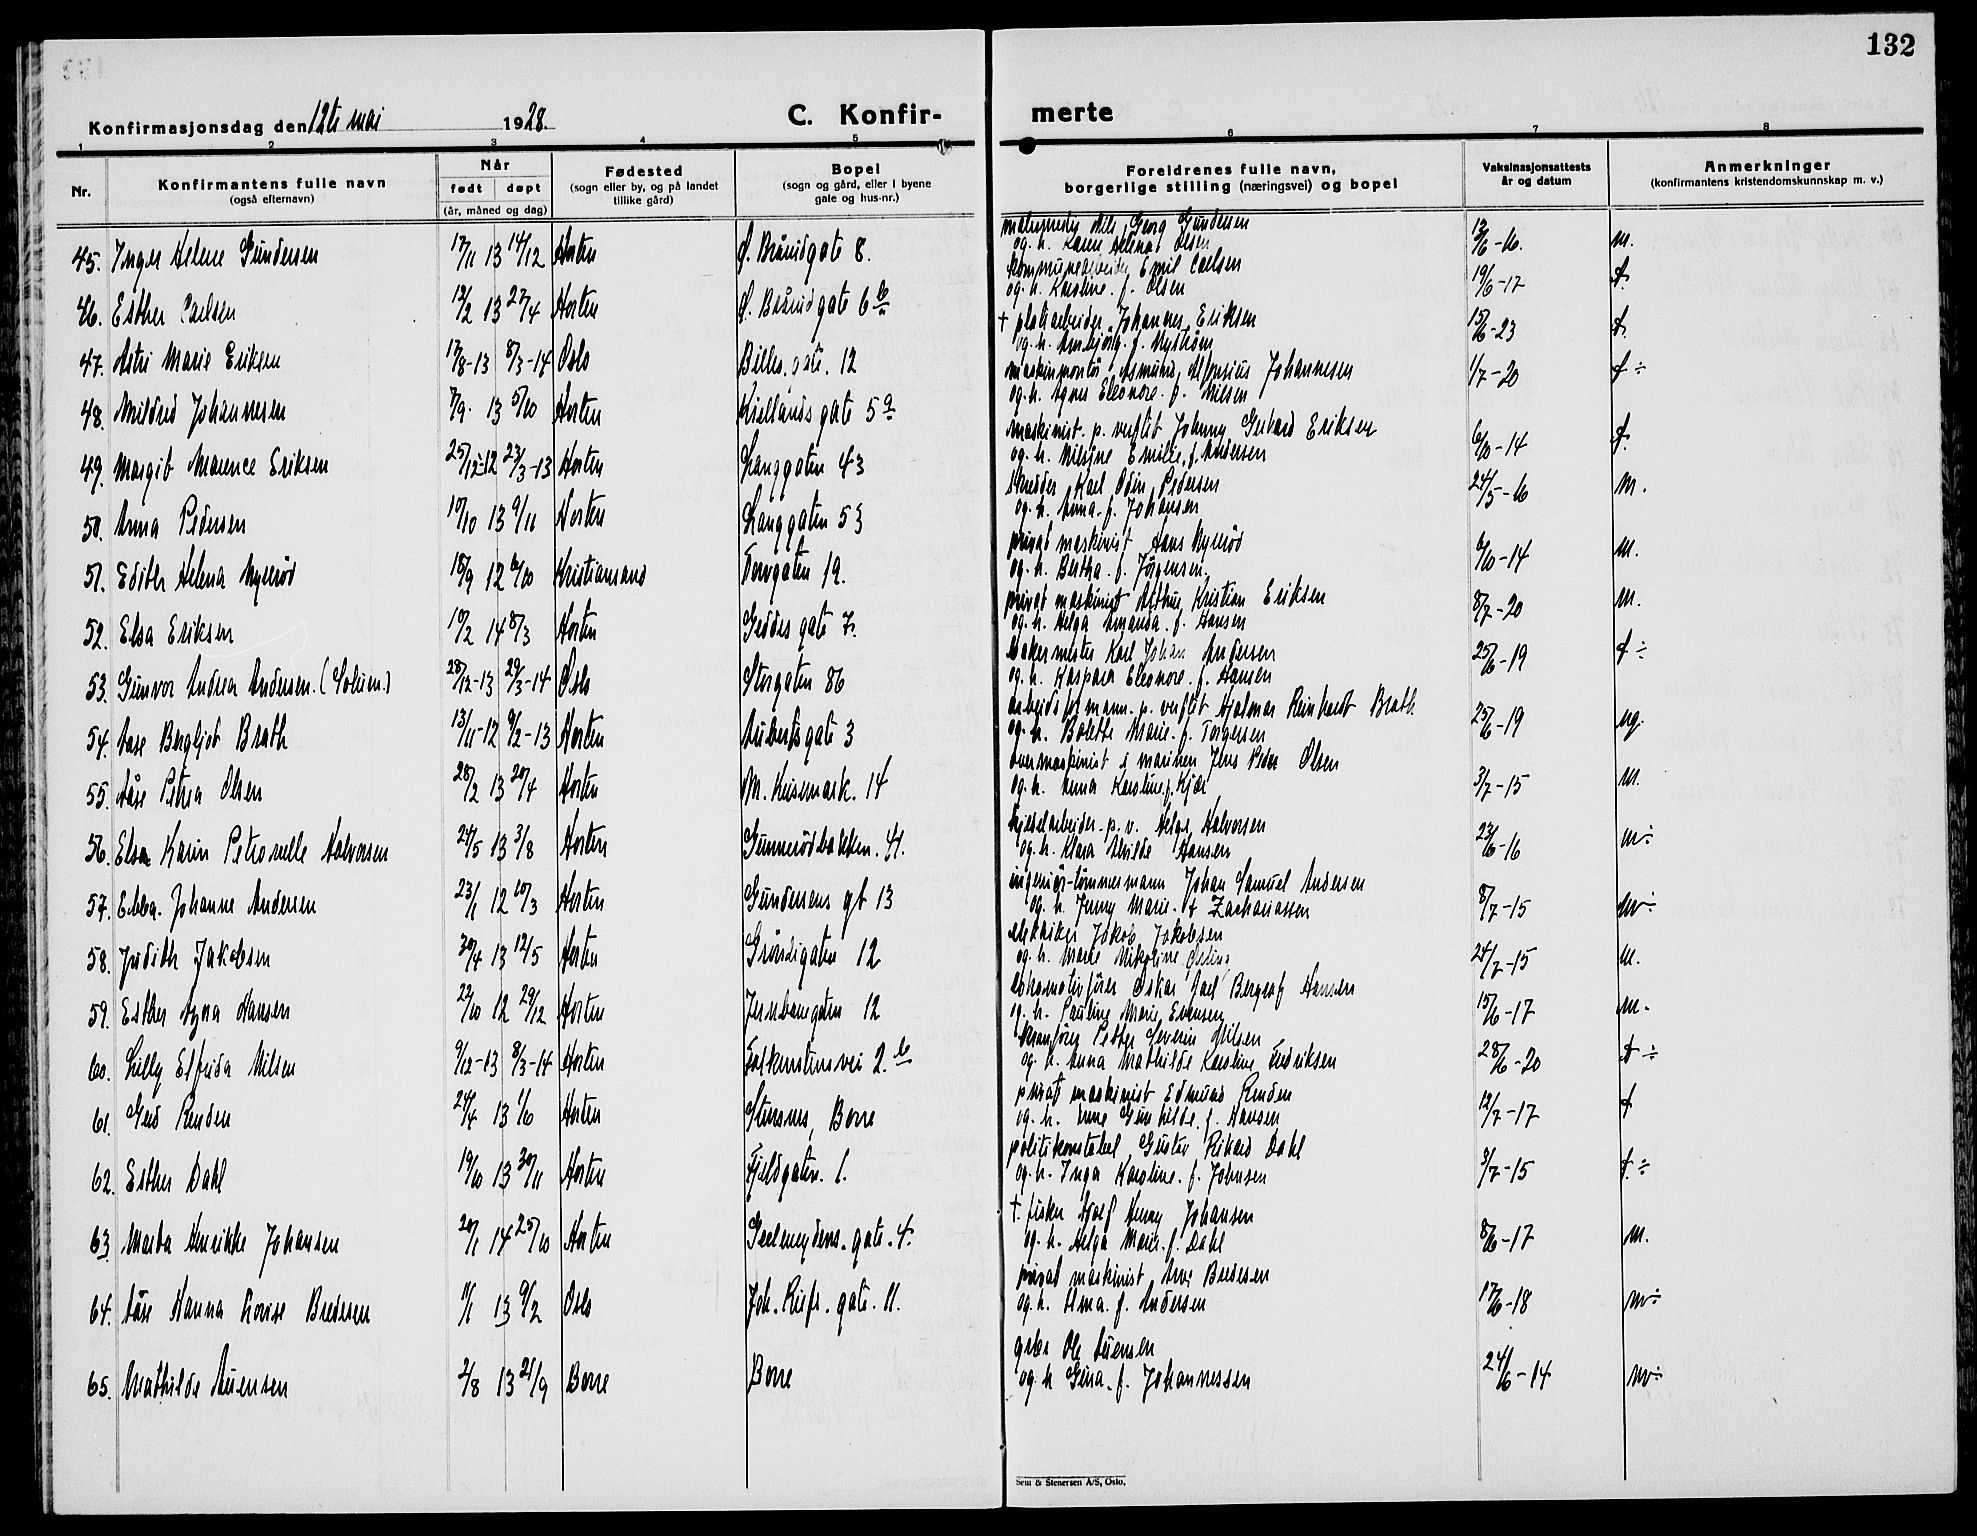 132
Konfirmasjonsdag den 12te mai 1928.
C. Konfir-
merte
1 2 3 4 5 6 7 8
Nr.
Konfirmantens fulle navn
(også efternavn)
Når
født døpt
(år, måned og dag)
Fødested
(sogn eller by, og på landet
tillike gård)
Bopel
(sogn og gård, eller i byene
gate og hus-nr.)
Foreldrenes fulle navn,
borgerlige stilling (næringsvei) og bopel
Vaksinasjonsattests
år og datum
Anmerkninger
(konfirmantens kristendomskunnskap m. v.)
45. Inger Helene Gundersen 17/11 13 14/12 Horten Ø. Brårudgate 8. Nils Georg Gundersen
og h. Karen Helena Olsen m.
46. Esther Carlsen 12/2 13 27/4 Horten Ø. Brårudgate 6 b kommunearbeider Emil Carlsen
og h. Karoline f. Olsen 19/6-17
47. Astri Marie Eriksen 17/8-13 8/3-14 Oslo Billes gate. 12 † platearbeider Johannes Eriksen
og h. f. Nyström 15/6-23
48. Mildred Johannesen 7/9. 13 5/10 Horten Kiellands gate 5 a maskinmontör Asmund Johannesen
og h. Agnes Eleonore f. Nilsen 1/7-20
49. Margit Marence Eriksen 25/12-12 23/3-13 Horten Langgaten 43 maskinist p. verftet Johnny Gerhard Eriksen
og h. Nilsine Emilie f. Andersen 6/10-14
50. Anna Pedersen 10/10 13 9/11 Horten Langgaten 53 Skredder Karl Odin Pedersen
og h. Anna f. Johansen 24/5-16 m.
51. Edith Helena Nyllerød 18/9 12 6/10 Kristiansand Torvgaten 19. privat maskinist Hans Nyllerød
og h. Bertha f. Jörgensen 6/10-14 m.
52. Elsa Eriksen 10/2 14 8/3 Horten Geddes gate 7. privat maskinist Arthur Kristian Eriksen
og h. Helga Amanda f. Hansen 8/7-20 m.
53. Gunvor Andrea Andersen. (Solum) 28/12-13 29/3-14 Oslo Storgaten 86 bakermester Karl Johan Andersen
og h. Kaspara Eleonore f. Hansen 25/6-19
54. Aase Bergljot Brath 13/11-12 9/2-13 Horten Aubertsgate 3 arbeidsformann p. verftet Hjalmar Reinhardt Brath
og h. Bolette Marie f. Torgersen 25/6-19 ng.
55. Aase Petrea Olsen 28/2 13 20/4 Horten M. Keisemark. 14 overmaskinist i marinen Jens Peder Olsen
og h. Anna Karoline f. Kjær 3/7-15 m.
56. Elsa Karin Petronelle Halvorsen 24/5 13 3/8 Horten Gunnerödbakken. 41. kjelearbeider p. v. Helge Halvorsen
og h. Klara Hansen 23/6-16 m÷
57. Ebba Johanne Andersen 23/1 12 10/3 Horten Gundersens gt 13 ingeniör-tömmermann Johan Samuel Andersen
og h. Jenny Marie f Zachariassen 8/7-15
58. Judith Jakobsen 30/4 13 12/5 Horten Gröndigaten 12 Jakob Jakobsen
og h. Marie Nikoline 24/7-15 m.
59. Esther Agna Hansen 22/10 12 29/12 Horten Jernbanegaten 12 Lokomotivfører Oskar Joel Bergraf Hansen
og h. Pauline Marie Evensen 15/6-17 m.
60. Lilly Elfrida Nilsen 9/12-13 8/3-14 Horten Falkenstensvei 2. b Kranfører Petter Severin Nilsen
og h. Anna Mathilde Karoline Fredriksen 28/6-20
61. Gerd Renden 24/4 13 1/6 Horten Stensnes, Borre privat maskinist Edmund Renden
og h. Anne Gunhilde f. Hansen 12/7-17
62. Esther Dahl 19/10 13 30/11 Horten Fjeldgaten. 1. politikonstabel Gustav Rikard Dahl
og h. Inga Karoline f. Johnsen 3/7-15
63 Marta Henrikke Johansen 20/1 14 25/10 Horten Geelmuydens gate. 4. † fisker Hjalf Henry Johansen
og h. Helga Marie f. Dahl 8/6-17 m.
64. Aase Hanna Lovise Bredesen 11/1 13 9/2 Oslo Joh. Riefs. gate. 11. privat maskinist Arne Bredesen
og h. Alma f. Andersen 17/6-18 m÷
65. Mathilde Auensen 2/8 13 21/9 Borre Borre Ole Auensen
og h Gina f. Johannessen 24/6-14 m÷
Sem & Stenersen A/S, Oslo.